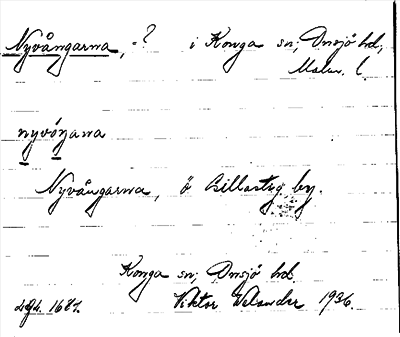 Nyvångarna, -? i Konga sn, Onsjö hd,
Malm. l.
nyvóŋana
Nyvångarna, å Billastig by.
Konga sn, Onsjö hd.
Viktor Welander 1936.